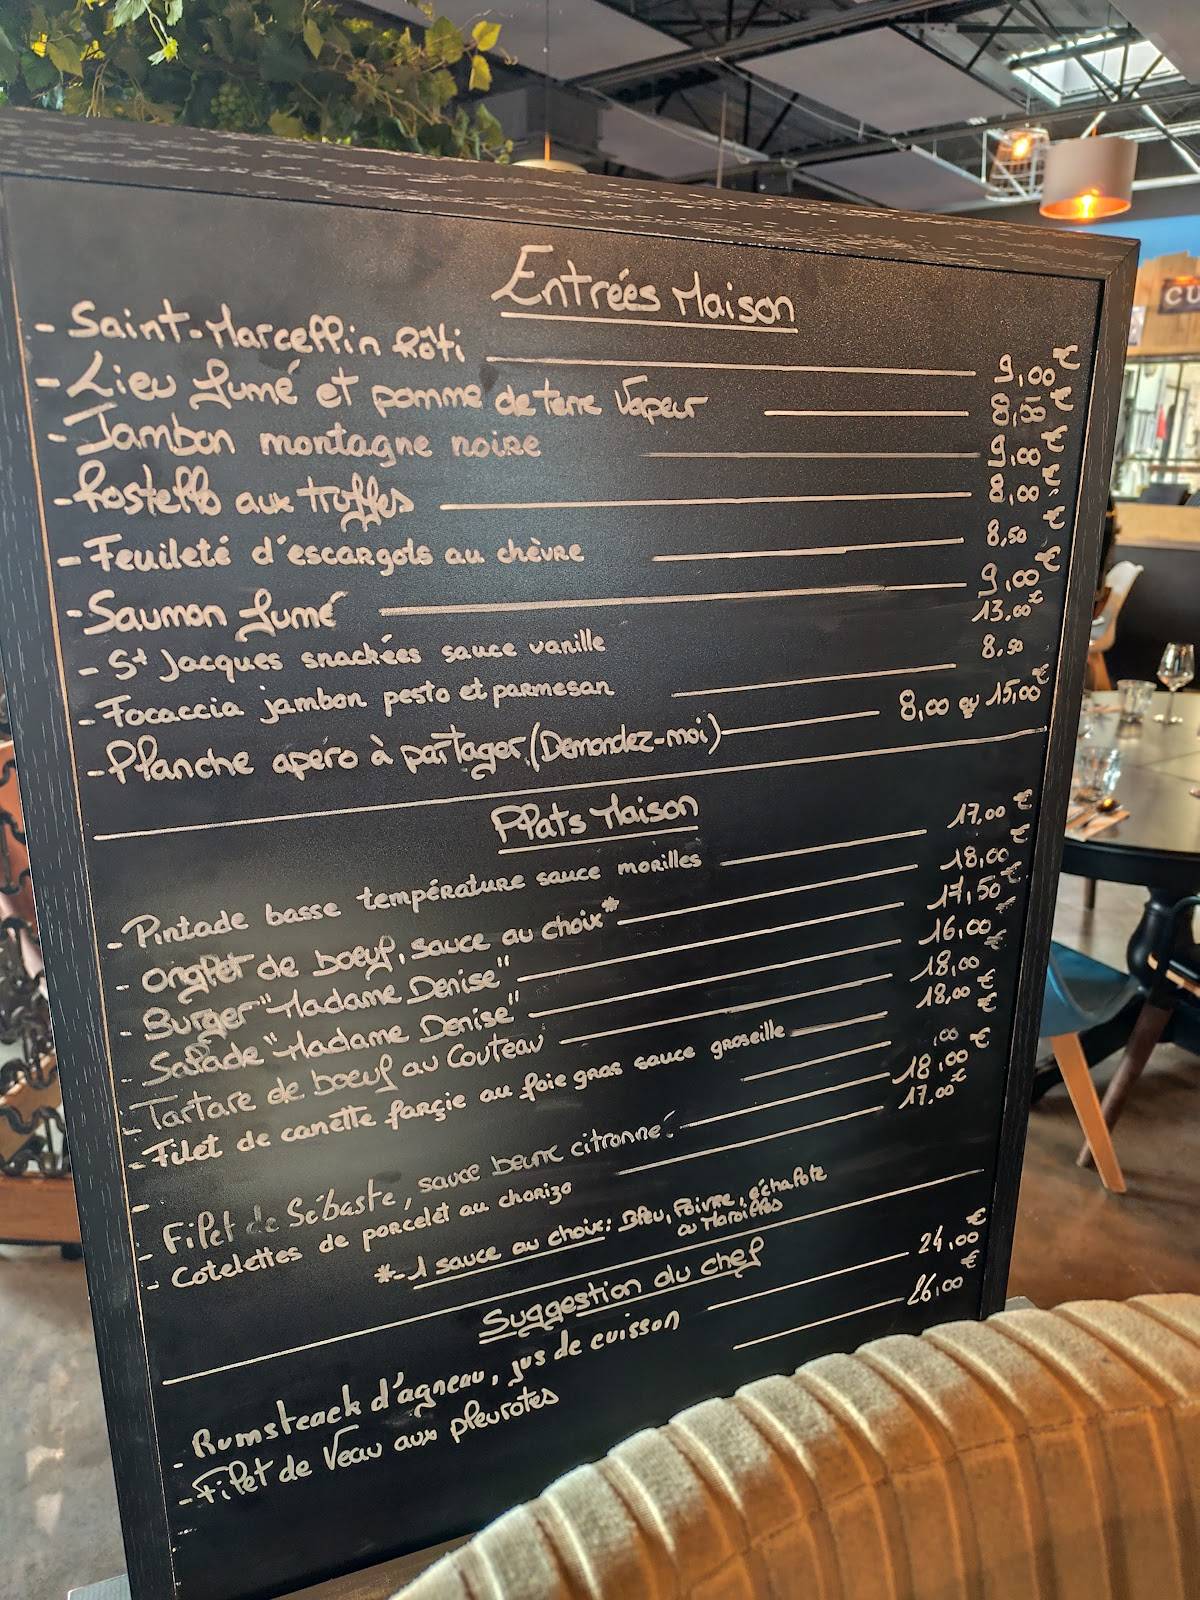 Entrées Maison
- Saint-Marcellin Rôti 9,00 €
- Lieu fumé et pomme de terre Vapeur 8,00 €
- Jambon montagne noire 9,00 €
- Rostello aux truffes 8,00 €
- Feuileté d'escargots au chèvre 8,50 €
- Saumon fumé 9,00 €
- St Jacques snackées sauce vanille 13,00 €
- Focaccia jambon pesto et parmesan 8,50
- Planche apéro à partager (Demandez-moi) 8,00 ou 15,00 €
Plats Maison
- Pintade basse température sauce morilles 17,00 €
- Onglet de boeuf, sauce au choix* 18,00 €
- Burger "Madame Denise" 17,50 €
- Salade "Madame Denise" 16,00 €
- Tartare de boeuf au Couteau 18,00 €
- Filet de canette farçie au foie gras sauce groseille 18,00 €
- ,00 €
- Filet de Sébaste, sauce beurre citronné 18,00 €
- Cotelettes de porcelet au chorizo 17,00 €
*- 1 sauce au choix : Bleu, Poivre, échalote
ou Maroilles
Suggestion du chef
- Rumsteack d'agneau, jus de cuisson 24,00 €
- Filet de Veau aux pleurotes 26,00 €
CU